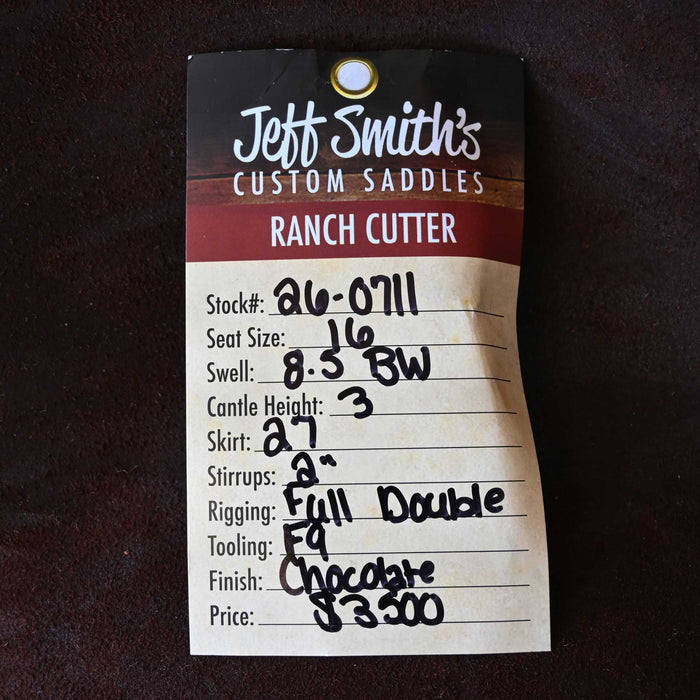 Jeff Smith's
CUSTOM SADDLES
RANCH CUTTER
Stock#: 26-0711
Seat Size: 16
Swell: 8.5 BW
Cantle Height: 3
Skirt: 27
Stirrups: 2"
Rigging: Full Double
Tooling: F9
Finish: Chocolate
Price: $3500